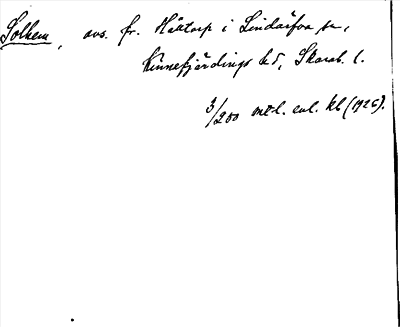 Solhem, avs. fr. Hättorp i Lindärva sn,
Kinnefjärdings hd, Skarab. l.
3/200 mtl. enl. kb (1926).